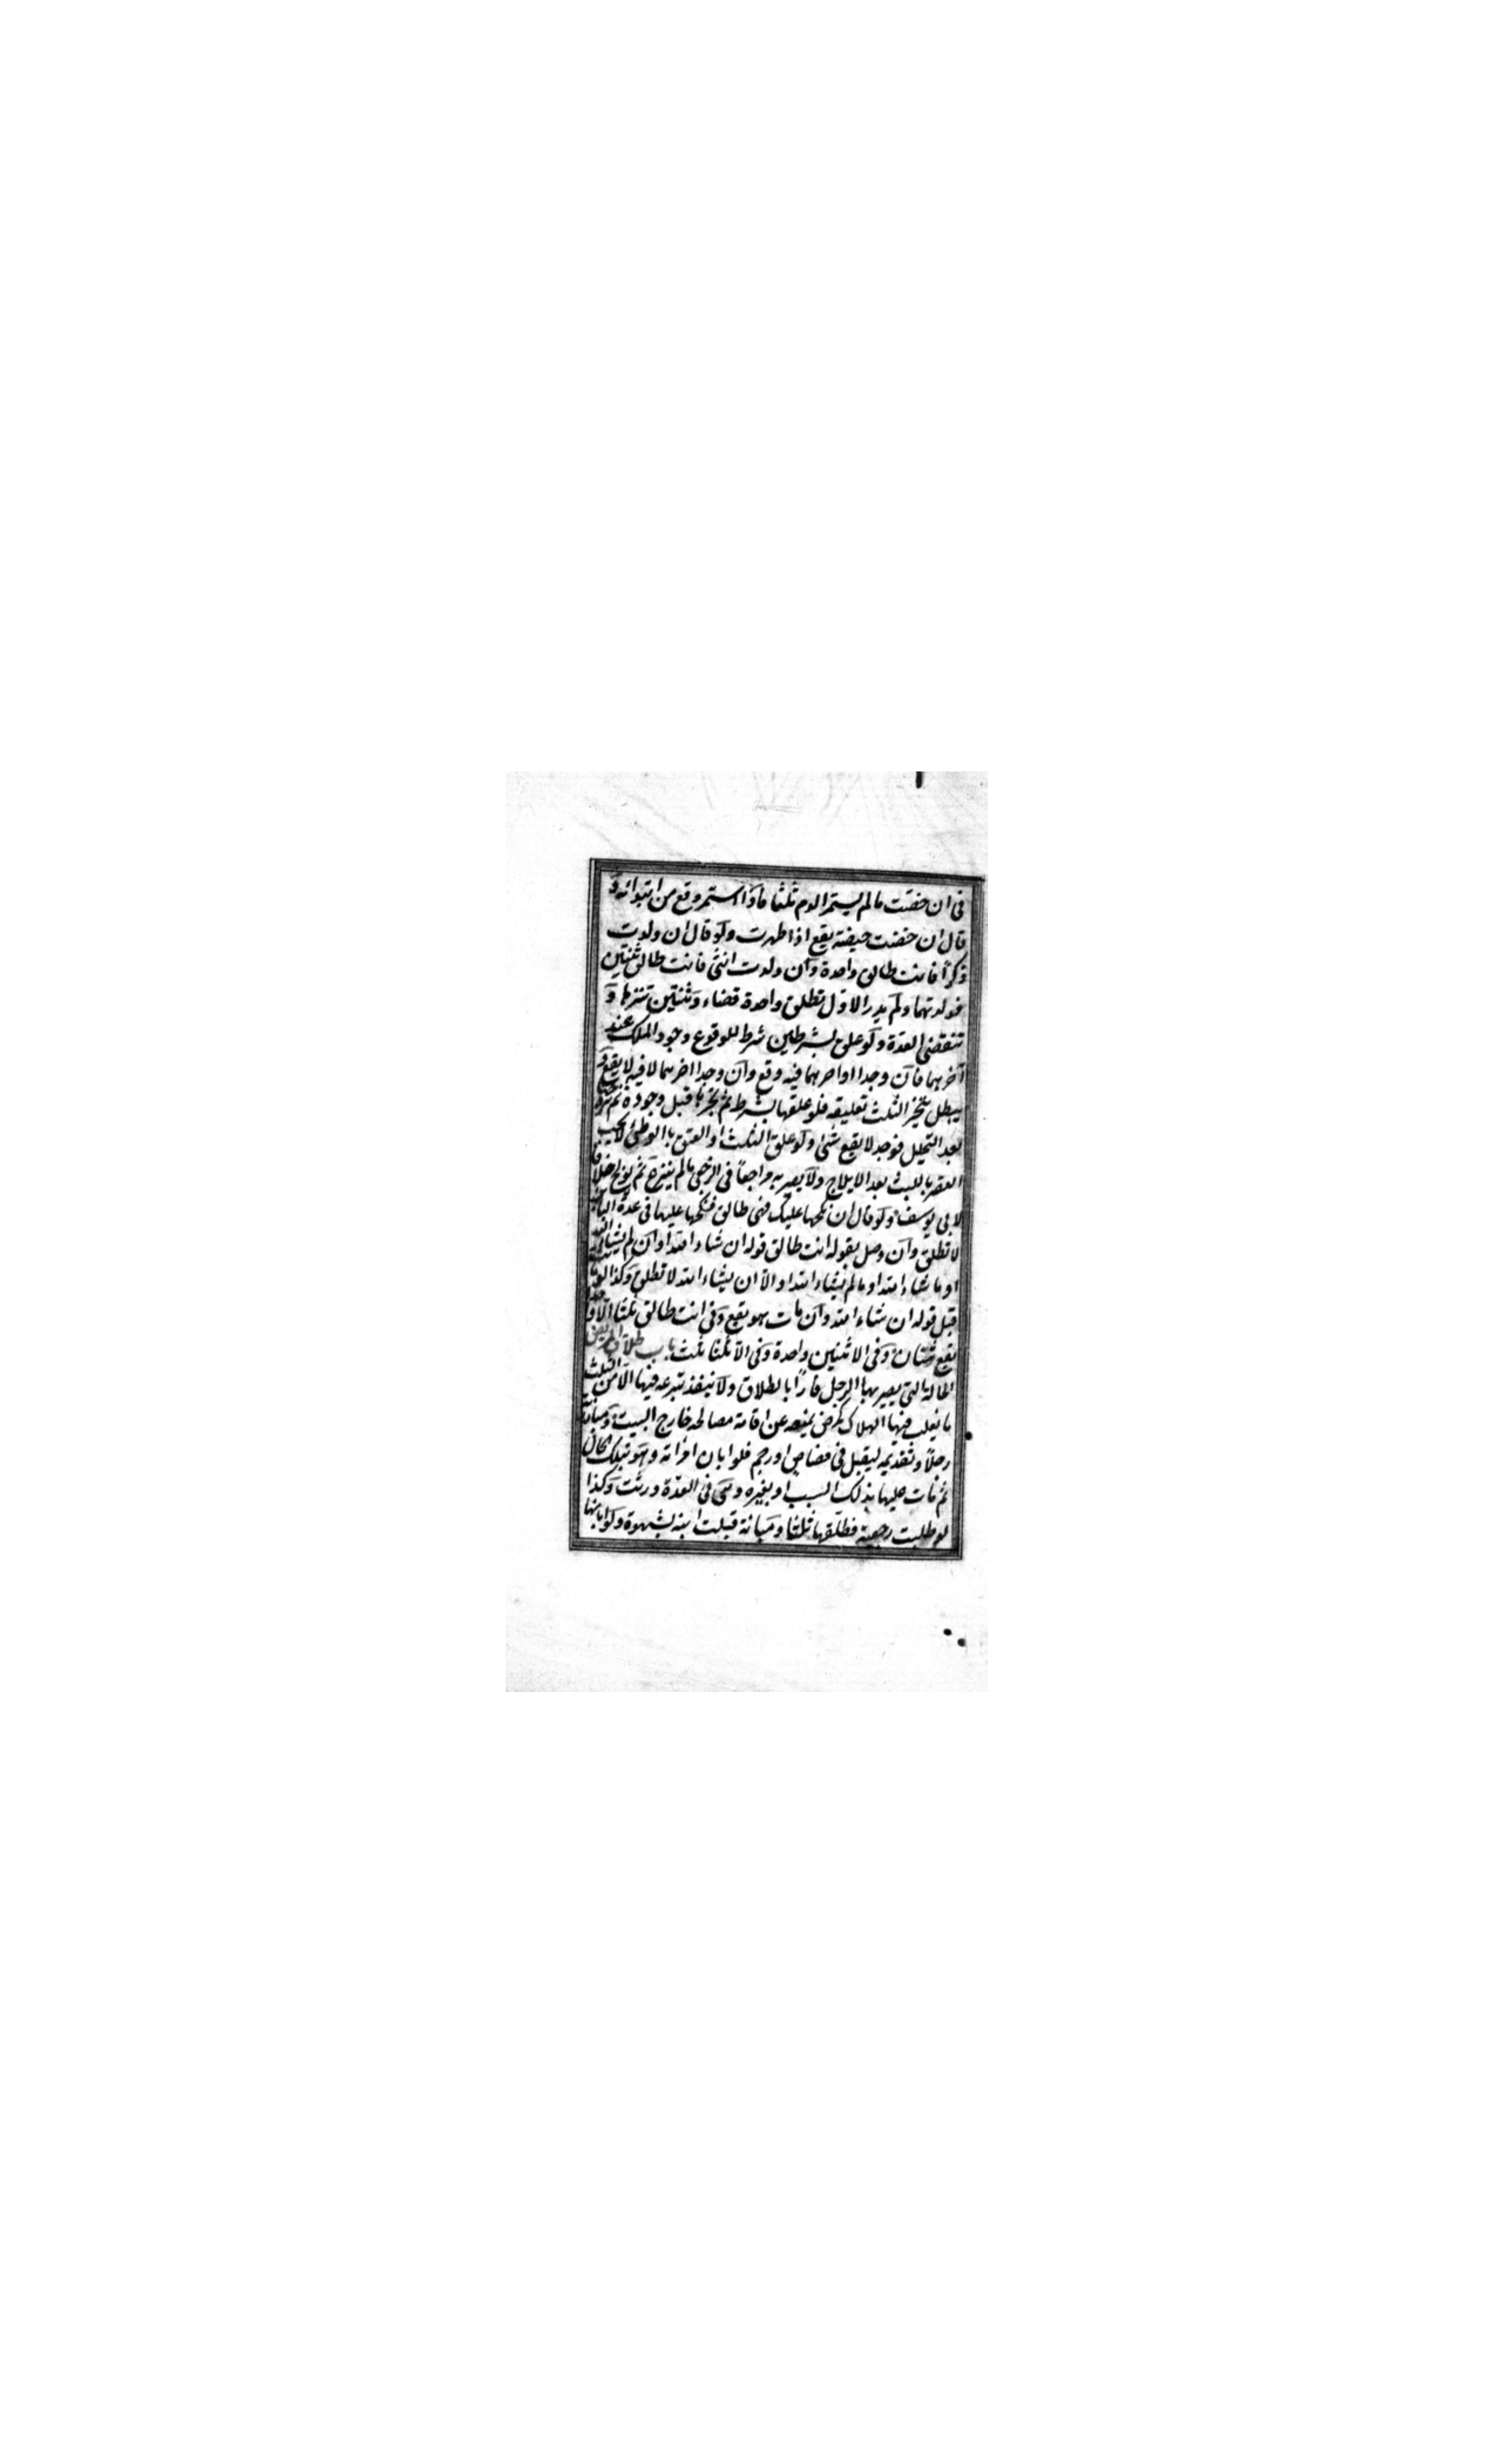 فى ان حضت ما لم يستمر الدم ثلثا فاذا استمر وقع من ابتدائه ولو
قال ان حضت حيضة يقع اذا طهرت ولو قال ان ولدت
ذكرا فانت طالق واحدة وان ولدت انثى فانت طالق ثنتين
فولدتهما ولم يدر الاول تطلق واحدة قضاء وثنتين تنزها و
تنقضى العدة ولو علق بشرطين شرط للوقوع وجود الملك عند
آخرهما فان وجدا او آخرهما فيه وقع وان وجدا آخرهما لا فيه لا يقع و
يبطل تنجيز الثلث تعليقه فلو علقها بشرط ثم نجزها قبل وجوده ثم تزوجها
بعد التحليل فوجد لا يقع شئ ولو علق الثلث او العتق بالوطئ لا يجب
العقر باللبث بعد الايلاج ولا يصير به مراجعا فى الرجعى ما لم ينزع ثم يولج خلافا
لابى يوسف ولو قال ان نكحها عليك فهى طالق فنكحها عليها فى عدة البائن
لا تطلق وان وصل بقوله انت طالق قوله ان شاء الله او ان لم يشأ الله
او ما شاء الله او ما لم يشاء الله او الا ان يشاء الله لا تطلق وكذا لو ماتت
قبل قوله ان شاء الله وان مات هو يقع وفى انت طالق ثلثا الا واحدة
يقع ثنتان وفى الا ثنتين واحدة وفى الا ثلثا ثلث باب طلاق المريض
الحالة التى يصير بها الرجل فارا بالطلاق ولا ينفذ تبرعه فيها الا من الثلث
ما يغلب فيها الهلاك كمرض يمنعه عن اقامة مصالحه خارج البيت ومبارزته
رجلا وتقديمه ليقتل فى قصاص او رجم فلو ابان امرأته وهو بتلك الحال
ثم مات عليها بذلك السبب او بغيره وهى فى العدة ورثت وكذا
لو طلبت رجعية فطلقها ثلثا ومبانة قبلت ابنه بشهوة ولو ابانها